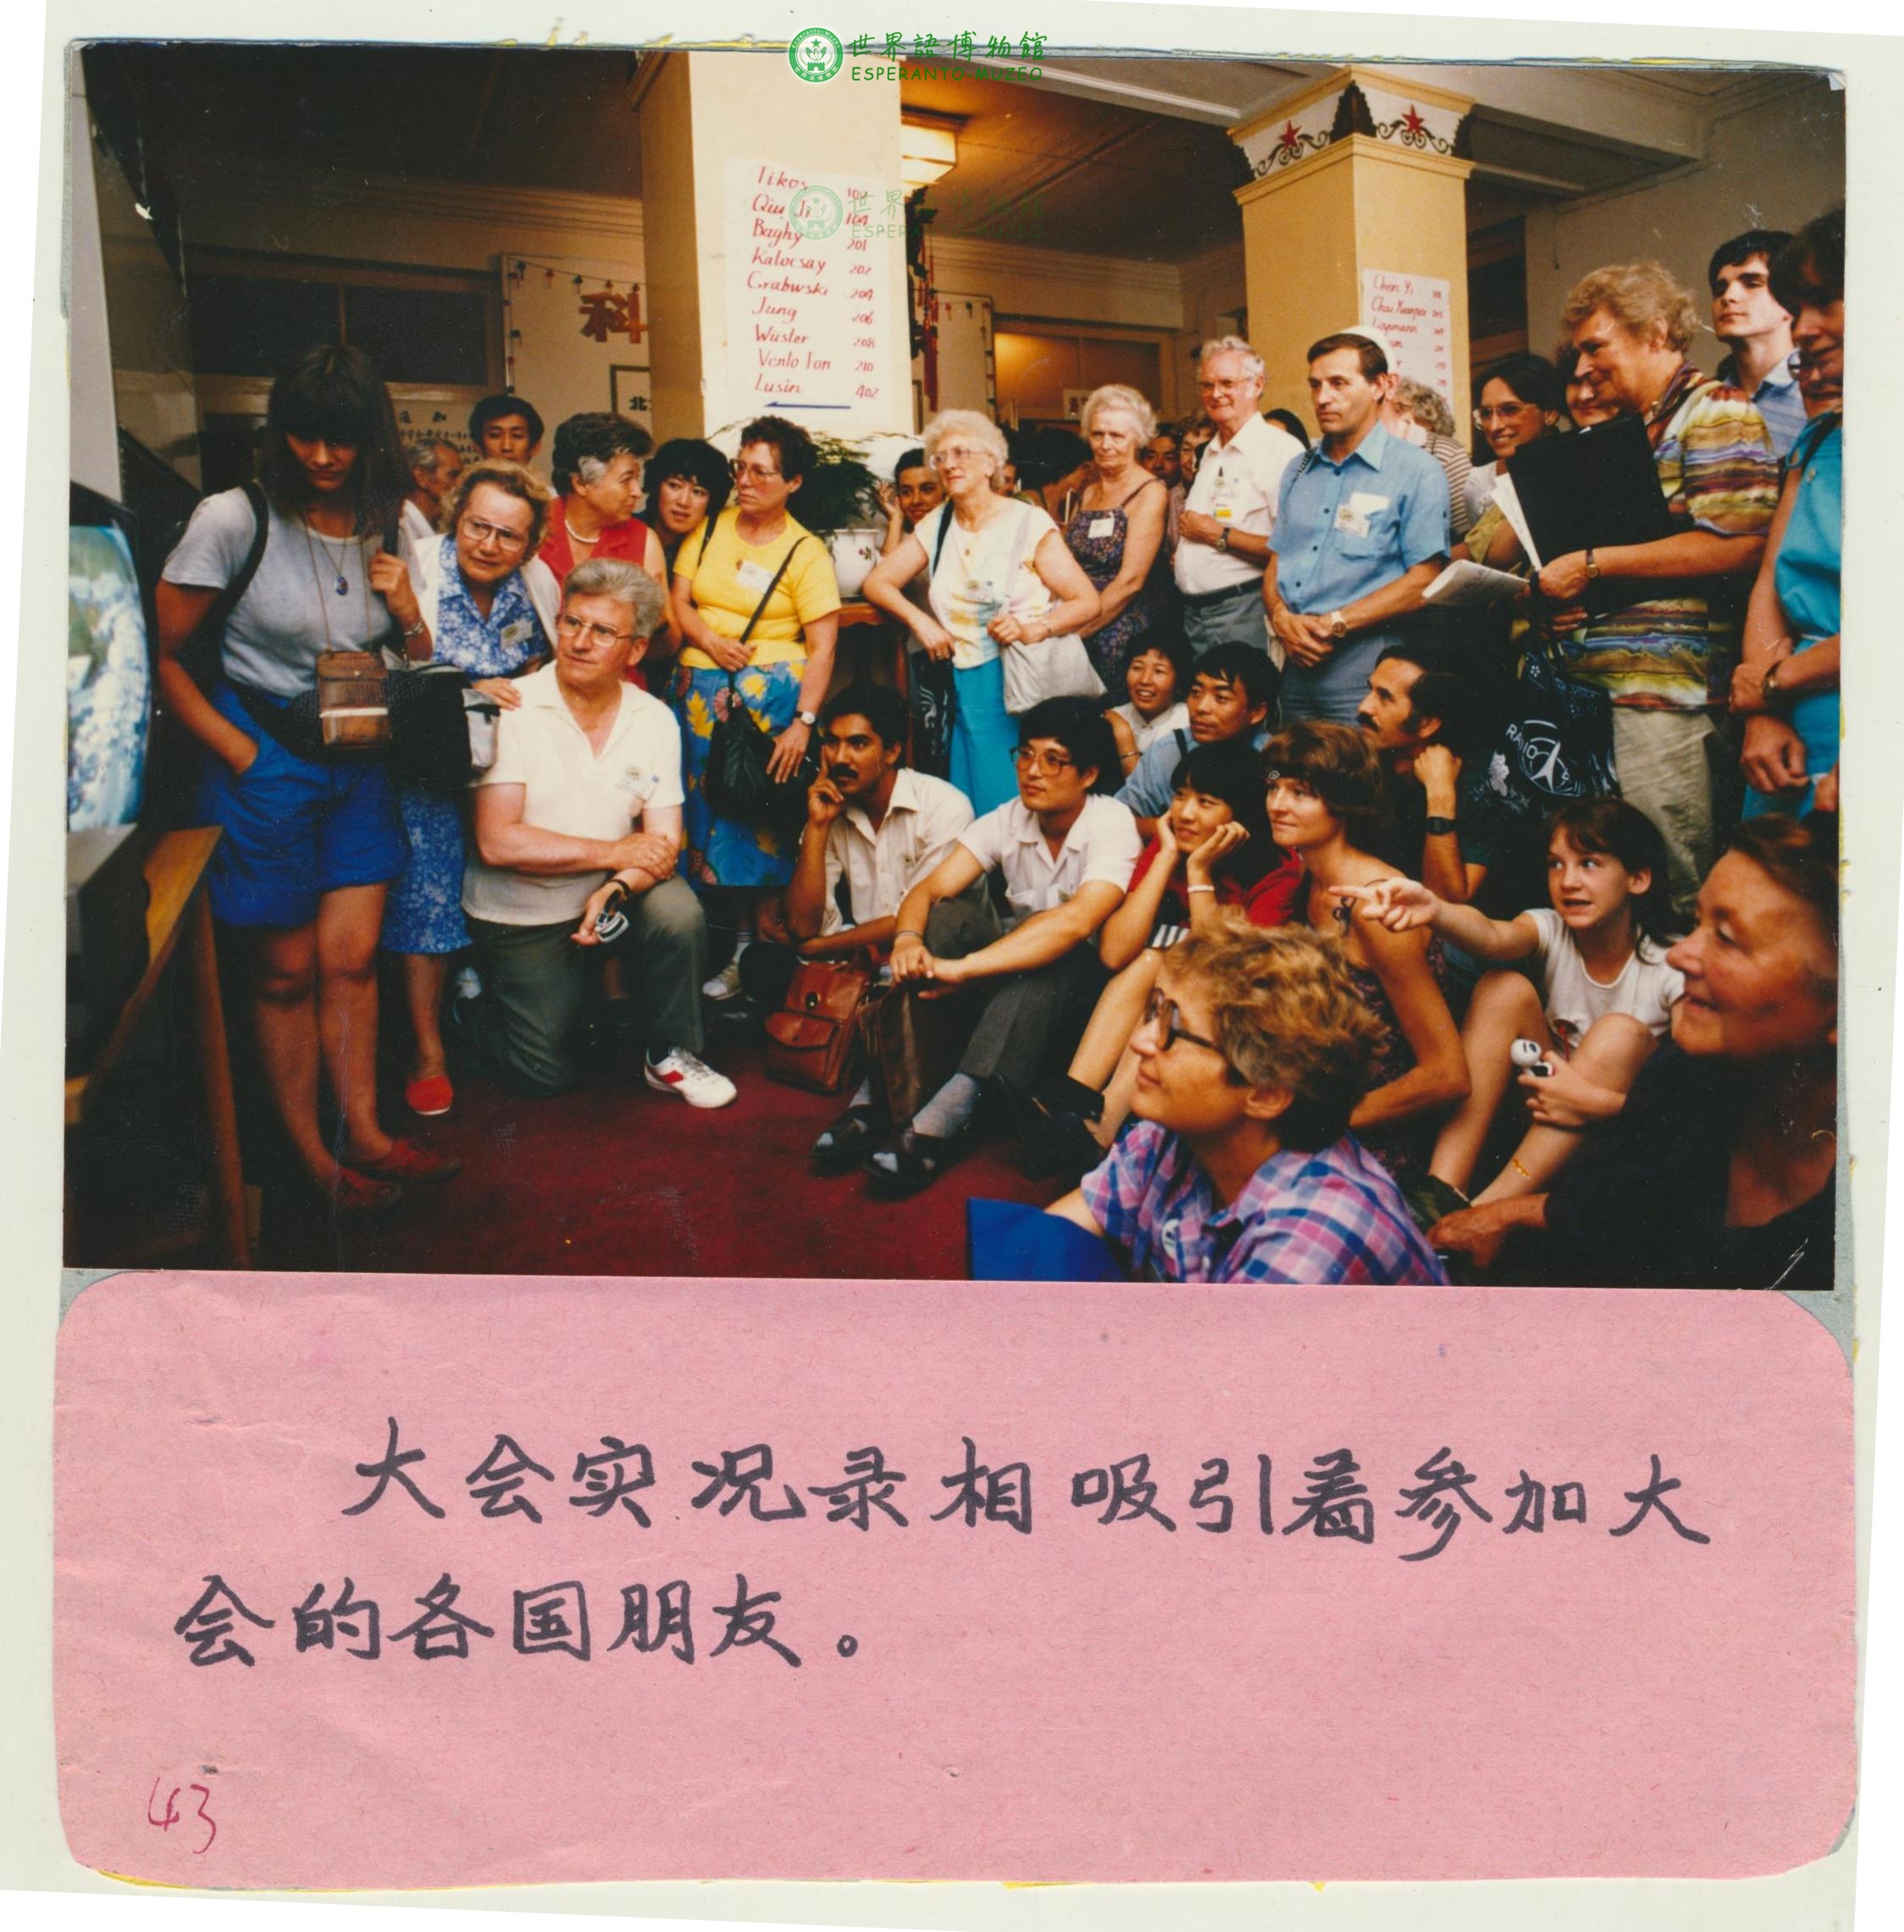 世界語博物館
ESPERANTO-MUZEO
Iikos
Qiu Ji 104
Baghy 201
Kalocsay 202
Grabwski 204
Jung 206
Wüster 208
Venlo Fon 210
Lusin 402
Chen Yi
Lippmann
科
北
通知
RADIO
大会实况录相吸引着参加大
会的各国朋友。
43